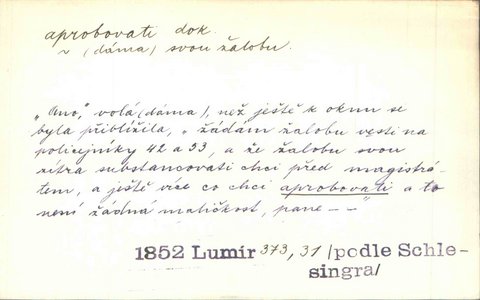 aprobovati dok.
~ (dáma) svou žalobu.
„Ano," volá (dáma), než ještě k oknu se
byla přiblížila, „žádám žalobu vesti na
policejníky 42 a 53, a že žalobu svou
zítra substancovati chci před magistrá-
tem, a ještě více co chci aprobovati a to
není žádná maličkost, pane – – "
1852 Lumír 373, 31 /podle Schle-
singra/